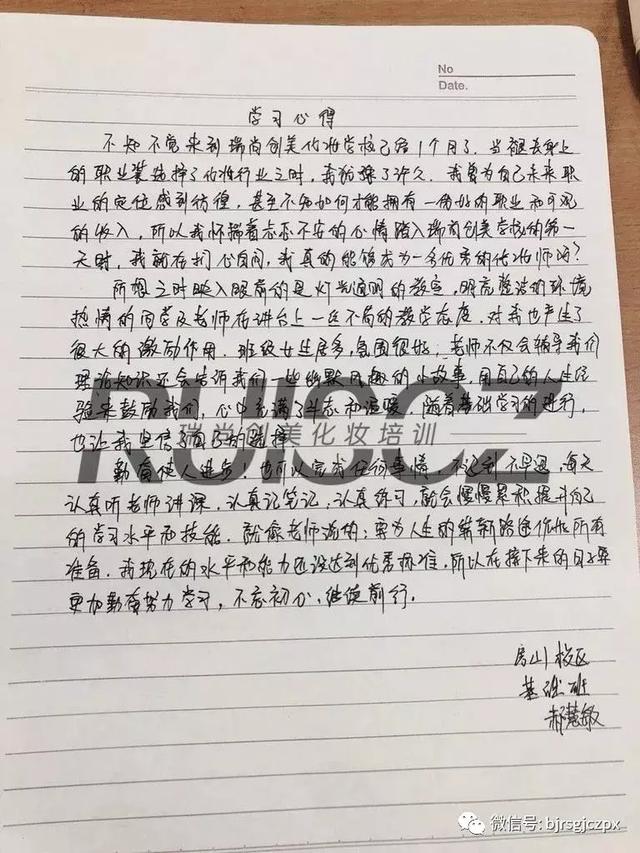 No
Date.
学习心得
不知不觉来到瑞尚创美化妆学校已经1个月了，当褪去身上
的职业装选择了化妆行业之时，我犹豫了许久。我曾为自己未来职
业的定位感到彷徨，甚至不知如何才能拥有一份好的职业和可观
的收入，所以我怀揣着忐忑不安的心情踏入瑞尚创美学校的第一
天时，我就在扪心自问，我真的能够成为一名优秀的化妆师吗？
所想之时映入眼帘的是灯光通明的教室，明亮整洁的环境
热情的同学及老师在讲台上一丝不苟的教学态度，对我也产生了
很大的激励作用。班级女生居多，氛围很好，老师不仅会辅导我们
理论知识还会告诉我们一些幽默风趣的小故事，用自己的人生经
验来鼓励我们，心中充满了斗志和温暖。随着基础学习的进行，
也让我坚信了自己的选择
勤奋使人进步！也可以完成任何事情，不迟到不早退，每天
认真听老师讲课，认真记笔记，认真练习，就会慢慢累积提升自己
的学习水平和技能。就像老师说的：要为人生的崭新路途作出所有
准备。我现在的水平和能力还没达到优秀标准，所以在接下来的日子要
更加勤奋努力学习，不忘初心，继续前行。
房山校区
基础班
郝慧敏
RUISCZ
瑞尚创美化妆培训
微信号: bjrsgjczpx